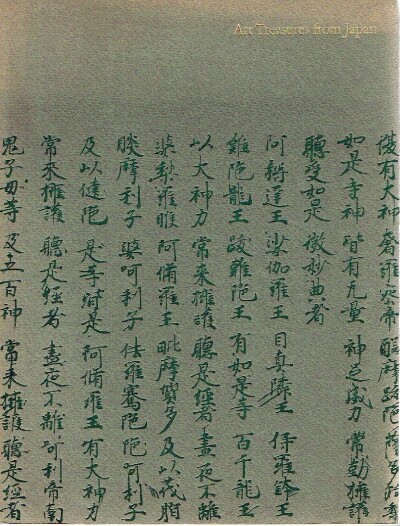 Art Treasures from Japan
復有大神 奢羅蜜帝 醯摩跋陁
如是等神 皆有无量 神足威力 常勤擁護
聽受如是 微妙典者
阿耨達王 娑伽羅王 目真隣王 伊羅鉢王
難陁龍王 跋難陁王 有如是等 百千龍王
以大神力 常來擁護 聽是經者 晝夜不離
婆利羅睺 阿脩羅王 毗摩質多 及以茂脂
睒摩利子 婆呵利子 佉羅騫陁 陁呵利子
及以健陁 是等皆是 阿脩羅王 有大神力
常來擁護 聽是經者 晝夜不離 呵利帝南
鬼子母等 及五百神 常來擁護 聽是經者